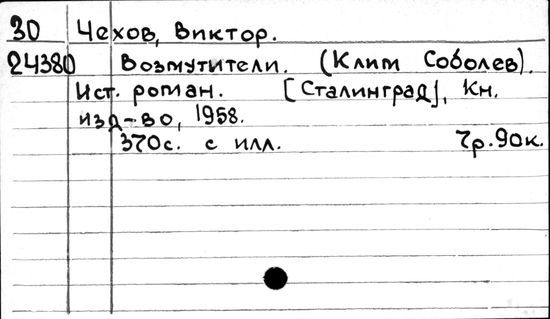 30 Чехов, Виктор.
24380 Возмутители. (Клим Соболев).
Ист. роман. [Сталинград], Кн.
изд-во, 1958.
370с. с илл. 7р.90к.